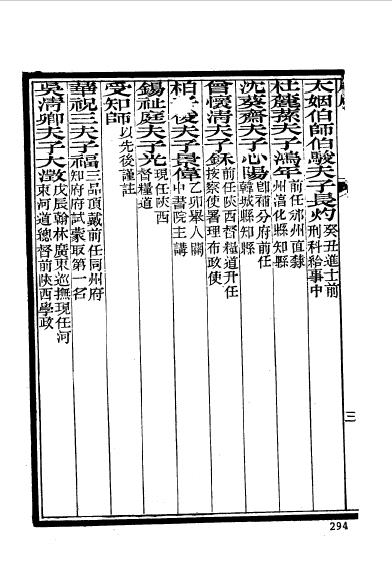 太姻伯師伯駿夫子長灼 癸丑進士前刑科給事中
杜麓蓀夫子鴻年 前任邠州直隸州淯化縣知縣
沈葵齋夫子心陽 卽補分府前任韓城縣知縣
曾懷淸夫子鉌 前任陝西督糧道升任按察使署理布政使
柏 俊夫子景偉 乙卯舉人關中書院主講
錫祉庭夫子光 現任陝西督糧道
受知師 以先後謹註
華祝三夫子福 三品頂戴前任同州府知府府試蒙取第一名
吳淸卿夫子大澂 戊辰翰林廣東巡撫現任河東河道總督前陝西學政
三
294